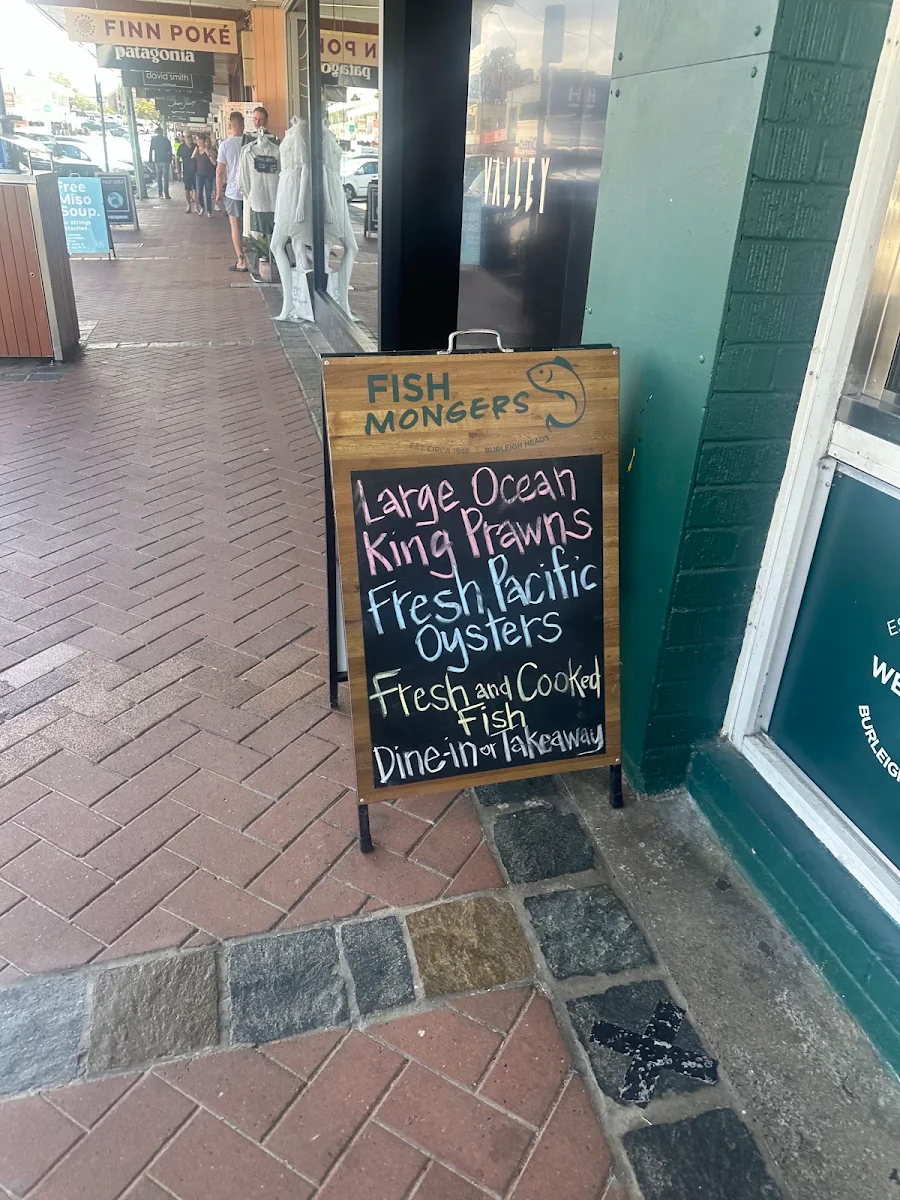 FINN POKÉ
patagonia
david smith
Free
Miso
Soup.
VALLEY
FISH
MONGERS
EST CIRCA 1948 | BURLEIGH HEADS
Large Ocean
King Prawns
Fresh Pacific
Oysters
Fresh and Cooked
Fish
Dine-in or Takeaway
ES
WE
BURLEIG